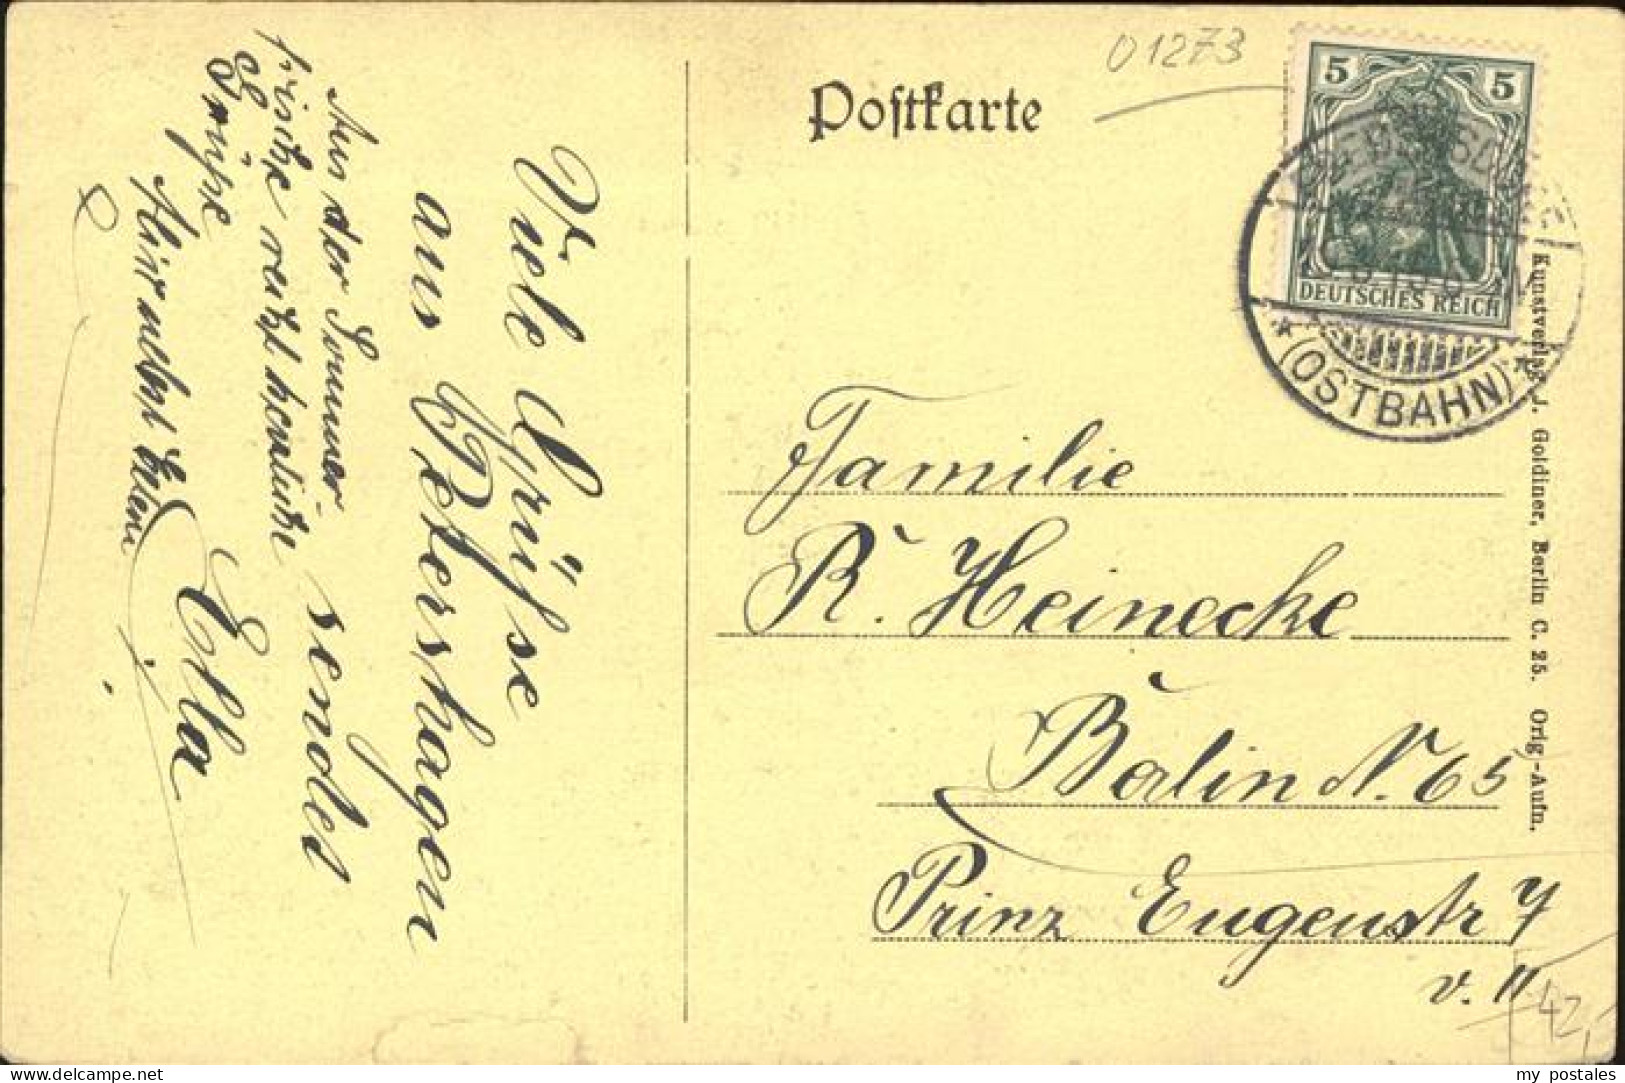 Postkarte
01273
5 5
DEUTSCHES REICH
(OSTBAHN)
Familie
R. Heinecke
Berlin N. 65
Prinz Eugenstr 7
v. II
42,
Kunstverlag J. Goldiner, Berlin C. 25. Orig-Aufn.
Viele Grüsse
aus Petershagen
sendet
Ella
Aus der Sommer-
frische recht herzliche
Grüße